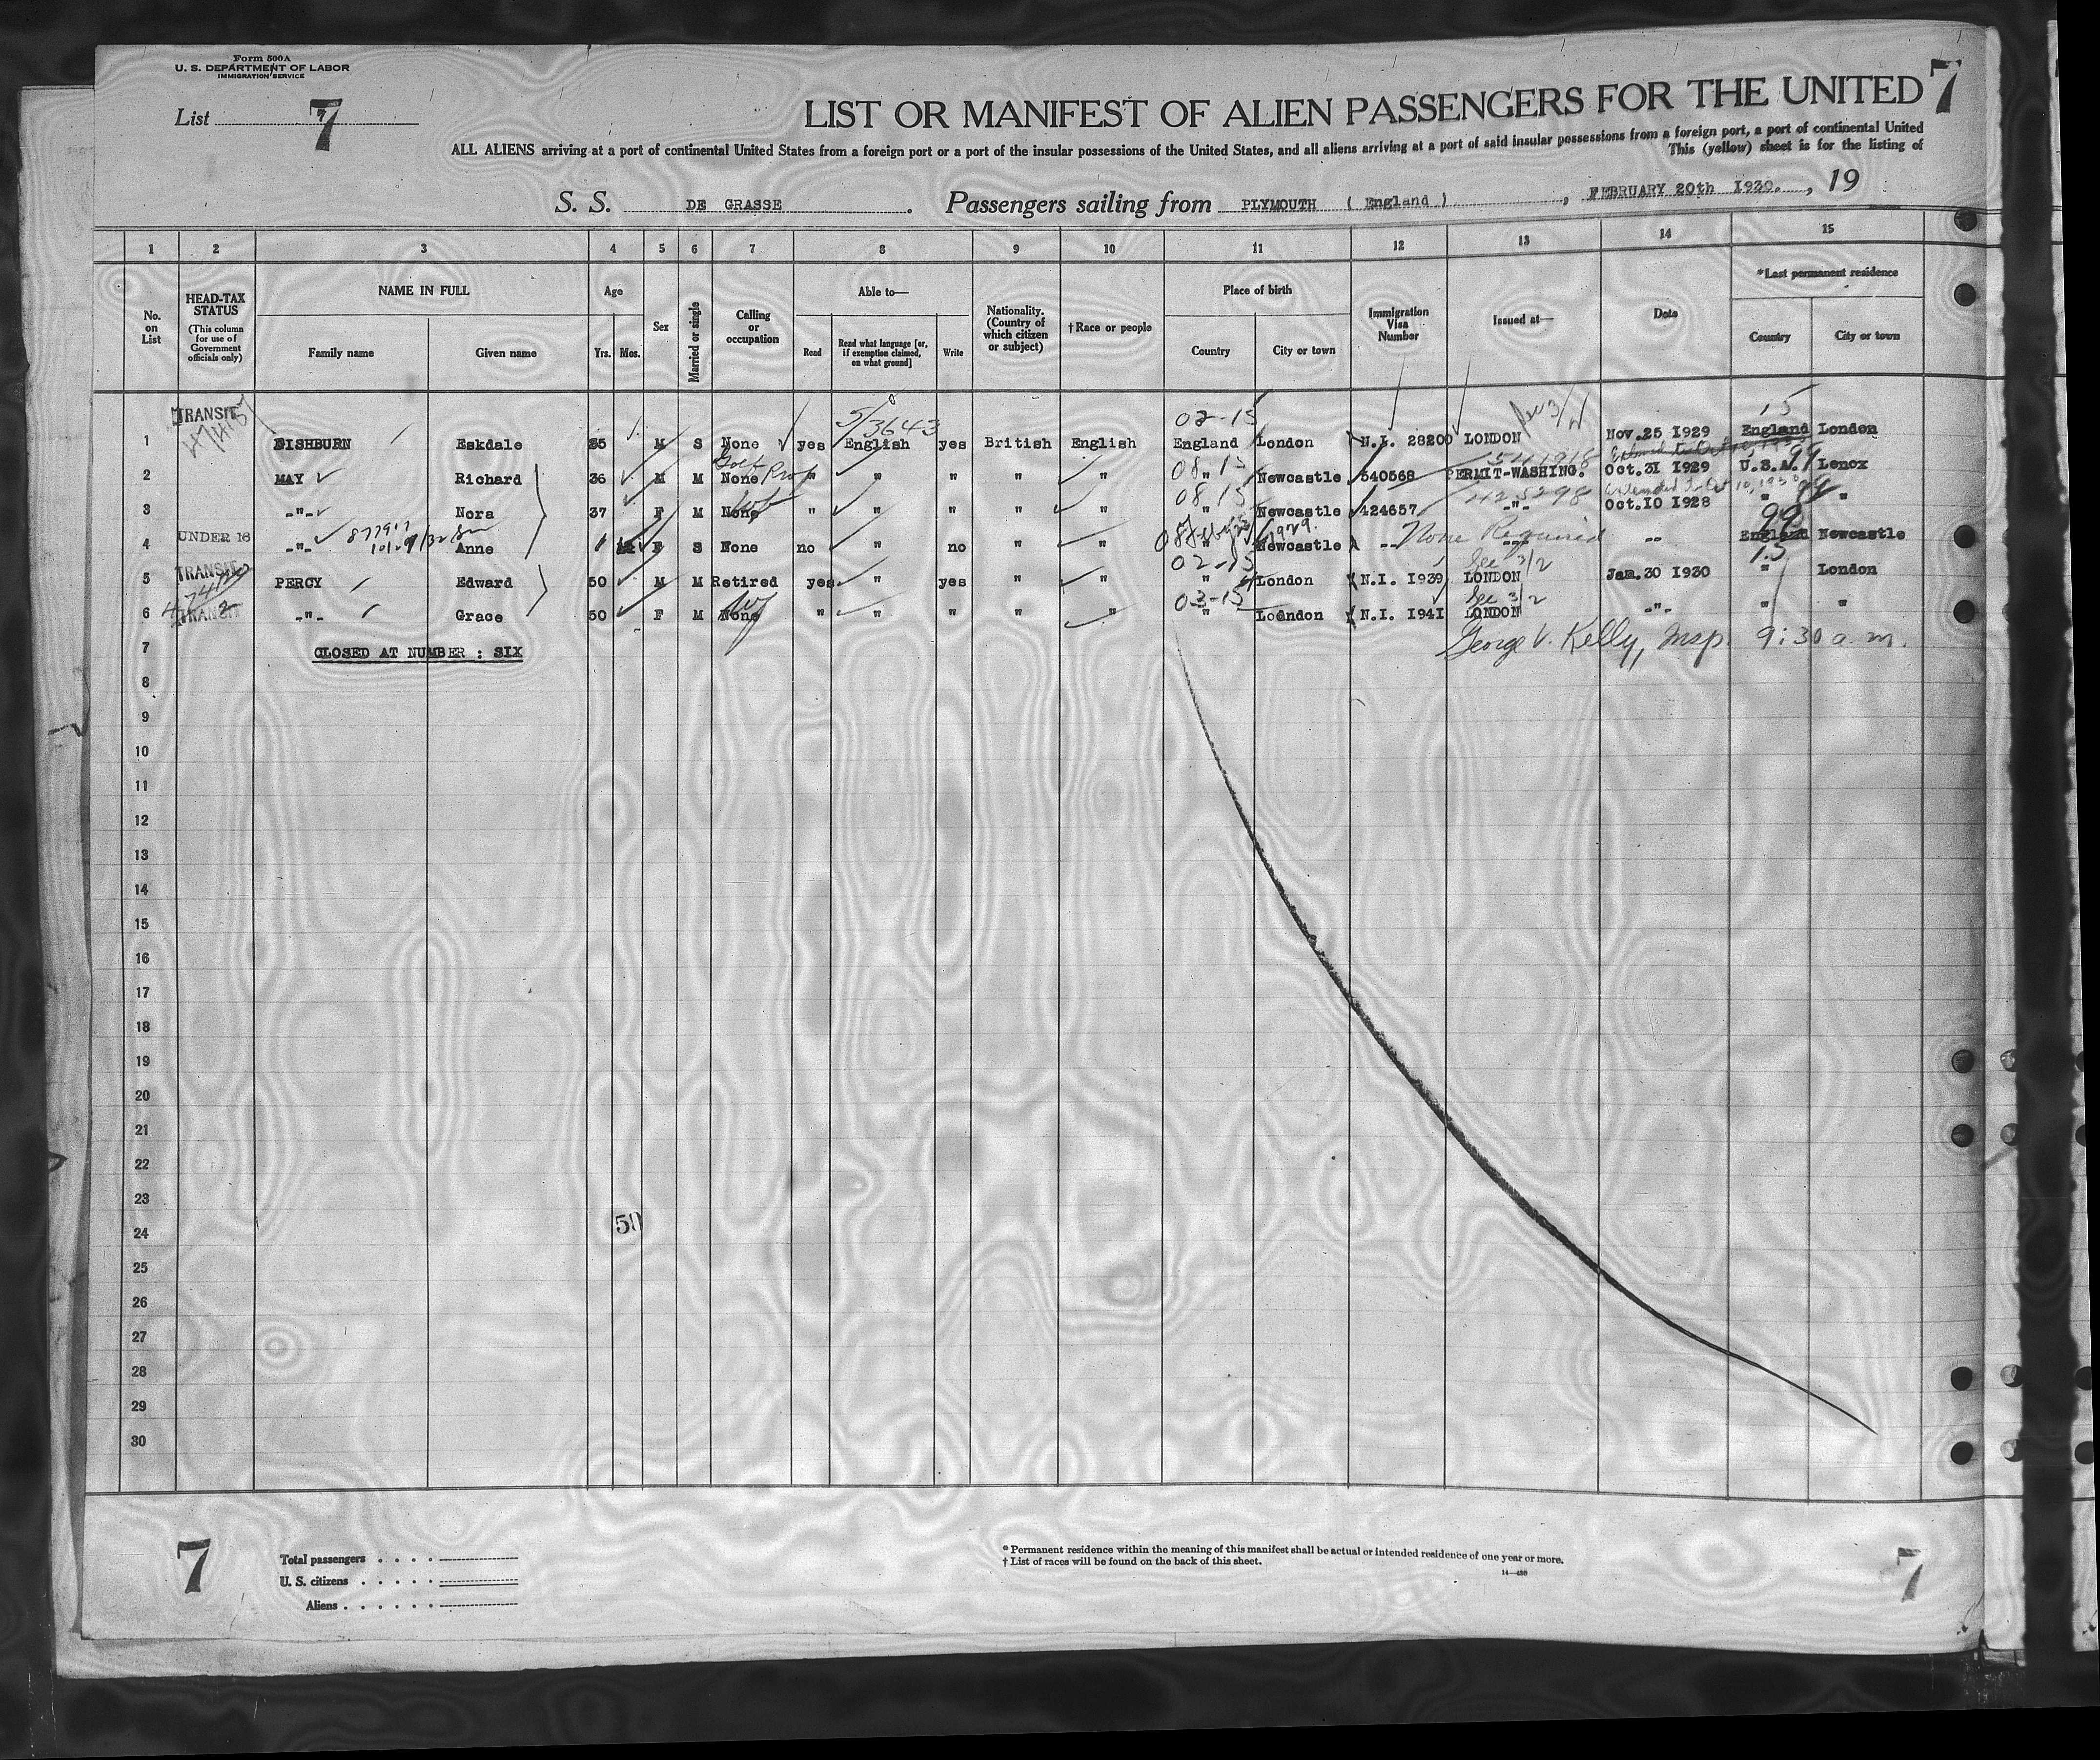 Form 500A
U. S. DEPARTMENT OF LABOR
IMMIGRATION SERVICE
List 7
LIST OR MANIFEST OF ALIEN PASSENGERS FOR THE UNITED 7
ALL ALIENS arriving at a port of continental United States from a foreign port or a port of the insular possessions of the United States, and all aliens arriving at a port of said insular possessions from a foreign port, a port of continental United
This (yellow) sheet is for the listing of
S. S. DE GRASSE . Passengers sailing from PLYMOUTH ( England ) , FEBRUARY 20th 1930. , 19
1 2 3 4 5 6 7 8 9 10 11 12 13 14 15
No. on List
HEAD-TAX STATUS (This column for use of Government officials only)
NAME IN FULL
Family name Given name
Age
Yrs. Mos.
Sex
Married or single
Calling or occupation
Able to—
Read Read what language [or, if exemption claimed, on what ground] Write
Nationality. (Country of which citizen or subject)
†Race or people
Place of birth
Country City or town
Immigration Visa Number
Issued at—
Date
*Last permanent residence
Country City or town
TRANSIT 5/3643 02-15 15
1 FISHBURN Eskdale M S None yes English yes British English England London N.I. 28200 LONDON Nov.25 1929 England London
Golf Prof 08-15 99
2 MAY Richard 36 M M None " " " " " " Newcastle 540568 PERMIT-WASHING. Oct.31 1929 U.S.A. Lenox
08-15 425298
3 -"- Nora 37 F M None " " " " " " Newcastle 424657 -"- Oct.10 1928 " "
UNDER 16 1929. 99
4 -"- Anne 1 F S None no " no " " " Newcastle -- None Required -- England Newcastle
TRANSIT 02-15 See 3/2 15
5 PERCY Edward 50 M M Retired yes " yes " " " London N.I. 1939 LONDON Jan.30 1930 " London
TRANSIT 03-15 See 3/2
6 -"- Grace 50 F M None " " " " " " Loendon N.I. 1941 LONDON -"- " "
7 CLOSED AT NUMBER : SIX George V. Kelly, Insp. 9:30 a.m.
8
9
10
11
12
13
14
15
16
17
18
19
20
21
22
23
24
25
26
27
28
29
30
7
Total passengers . . . .
U. S. citizens . . . . .
Aliens . . . . . .
* Permanent residence within the meaning of this manifest shall be actual or intended residence of one year or more.
† List of races will be found on the back of this sheet.
7